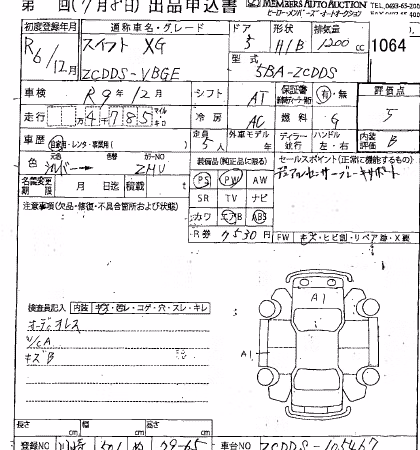 第 回(7月8日)出品申込書
MEMBERS AUTO AUCTION
ヒーローメンバーズオートオークション
TEL. 0693-65-200
初度登録年月 通称車名・グレード ドア 形状 排気量
R6/12月 スイフト XG 5 H/B 1200cc 1064
型式
ZCDDS-VBGE 5BA-ZCDDS
車検 R9年12月 シフト AT 保証書 有・無 評価点
走行 4785 冷房 AC 燃料 G 5
車歴 自家用・レンタ・事業用( ) 定員 5人 外車モデル年 ディーラー 並行 ハンドル 左・右 内装 B
色 元色 シルバー 色替 カラーNO ZHU
装備品(純正品に限る) セールスポイント(正常に機能するもの)
PS PW AW デュアルセンサーブレーキサポート
名義変更期限 月 日迄 積載 t
SR TV ナビ
注意事項(欠品・修復・不具合箇所および状態)
カワ エアB ABS
R券 7530円 FW キズ・ヒビ割・リペア跡・X要
検査員記入 内装 キズ・汚レ・コゲ・穴・スレ・キレ
オーディオレス
U/cA
キズB
A1
A1
長さ cm 幅 cm 高さ cm
登録NO 501 ぬ 79-65 車台NO ZCDDS-105467